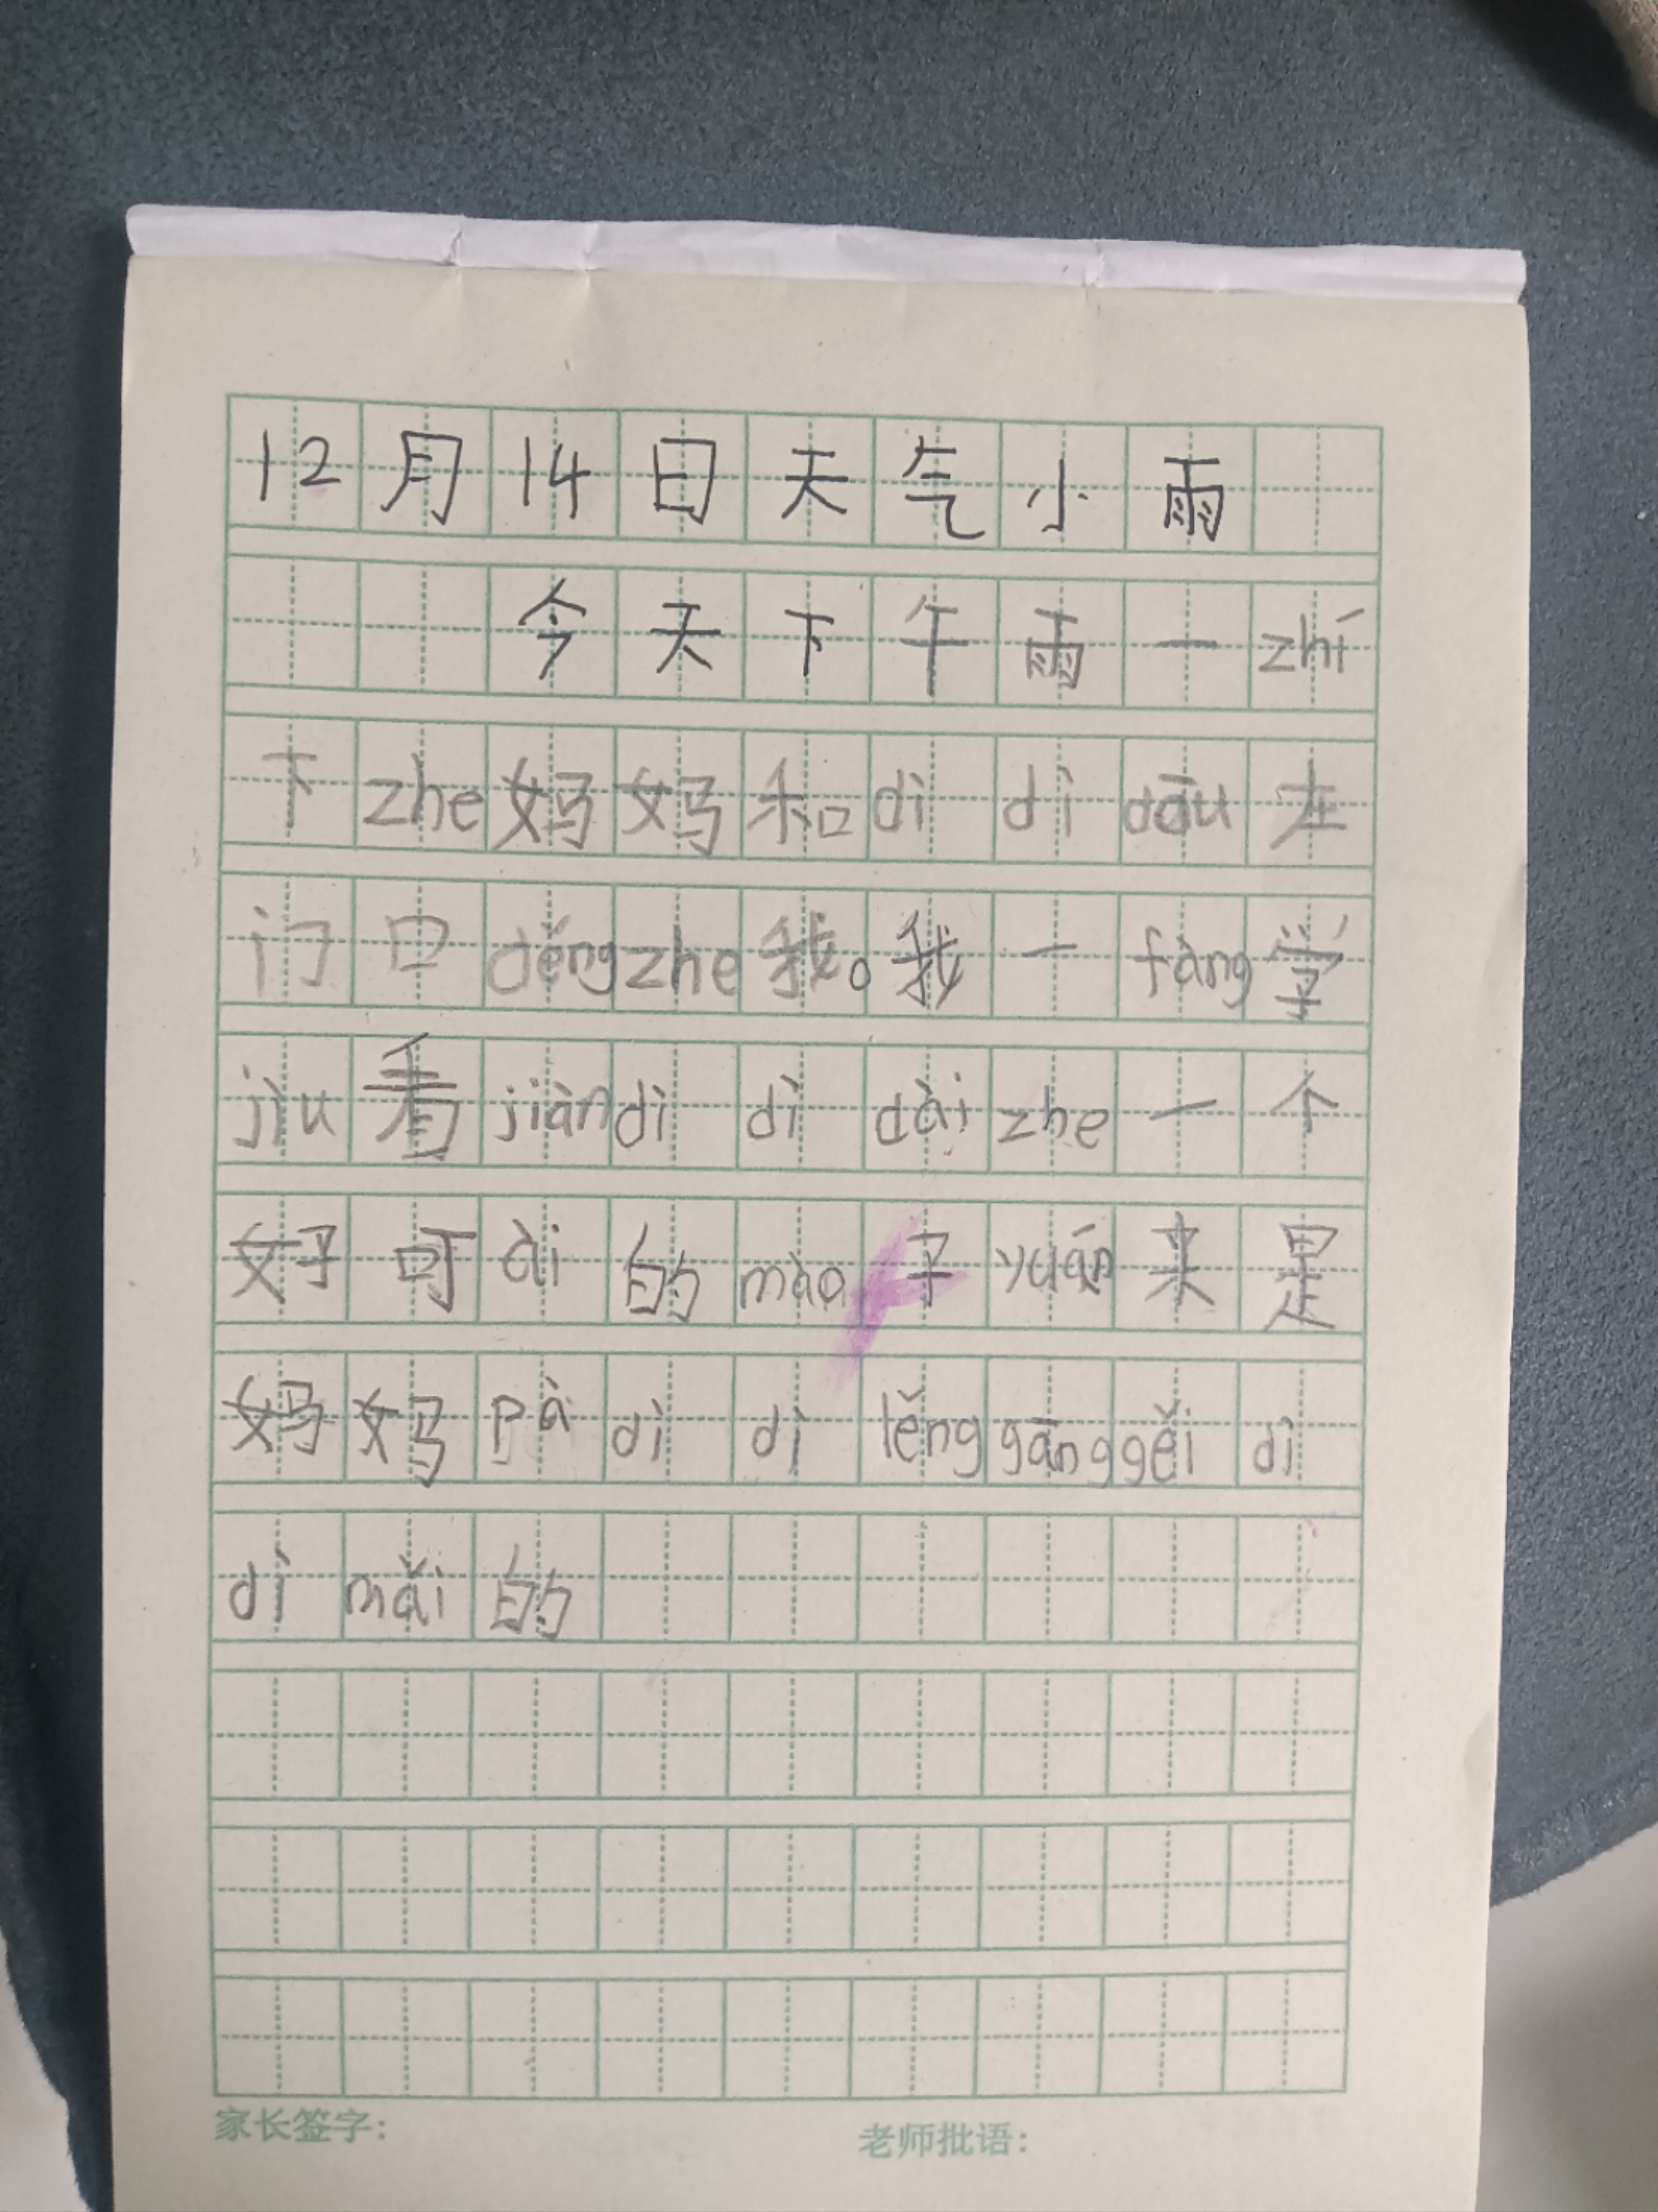 12月14日天气小雨
今天下午雨一zhí
下zhe妈妈和dì dì dōu在
门口děngzhe我。我一fàng学
jìu看jiàndì dì dàizhe一个
好可ài的mào子yuán来是
妈妈pà dì dì lěng gāng gěi dì
dí mǎi的
家长签字：
老师批语：